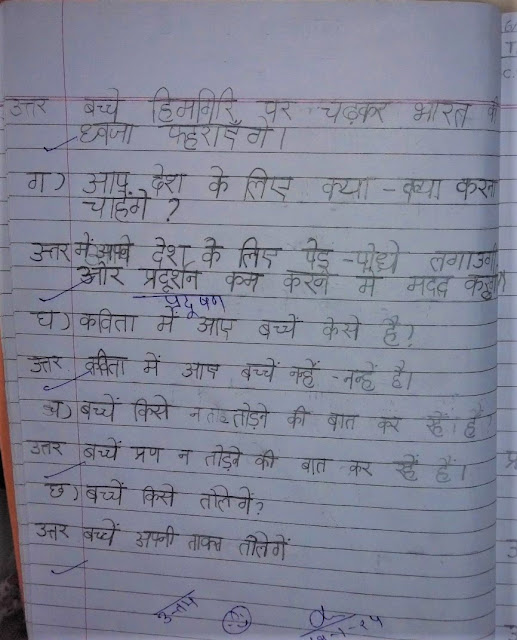 उत्तर बच्चे हिमगिरि पर चढ़कर भारत की
ध्वजा फहराएँगे।
ग) आप देश के लिए क्या-क्या करना
चाहेंगे ?
उत्तर में अपने देश के लिए पेड़-पौधे लगाउगी
और प्रदूर्शन कम करने में मदद करूँगी
प्रदूषण
घ) कविता में आए बच्चें केसे है?
उत्तर कविता में आए बच्चें नन्हें-नन्हें है।
बच्चें किसे न तोड़ने की बात कर रहें है
उत्तर बच्चें प्रण न तोड़ने की बात कर रहें हैं।
छ) बच्चें किसे तोलेगें?
उत्तर बच्चें अपनी ताकत तोलेगें